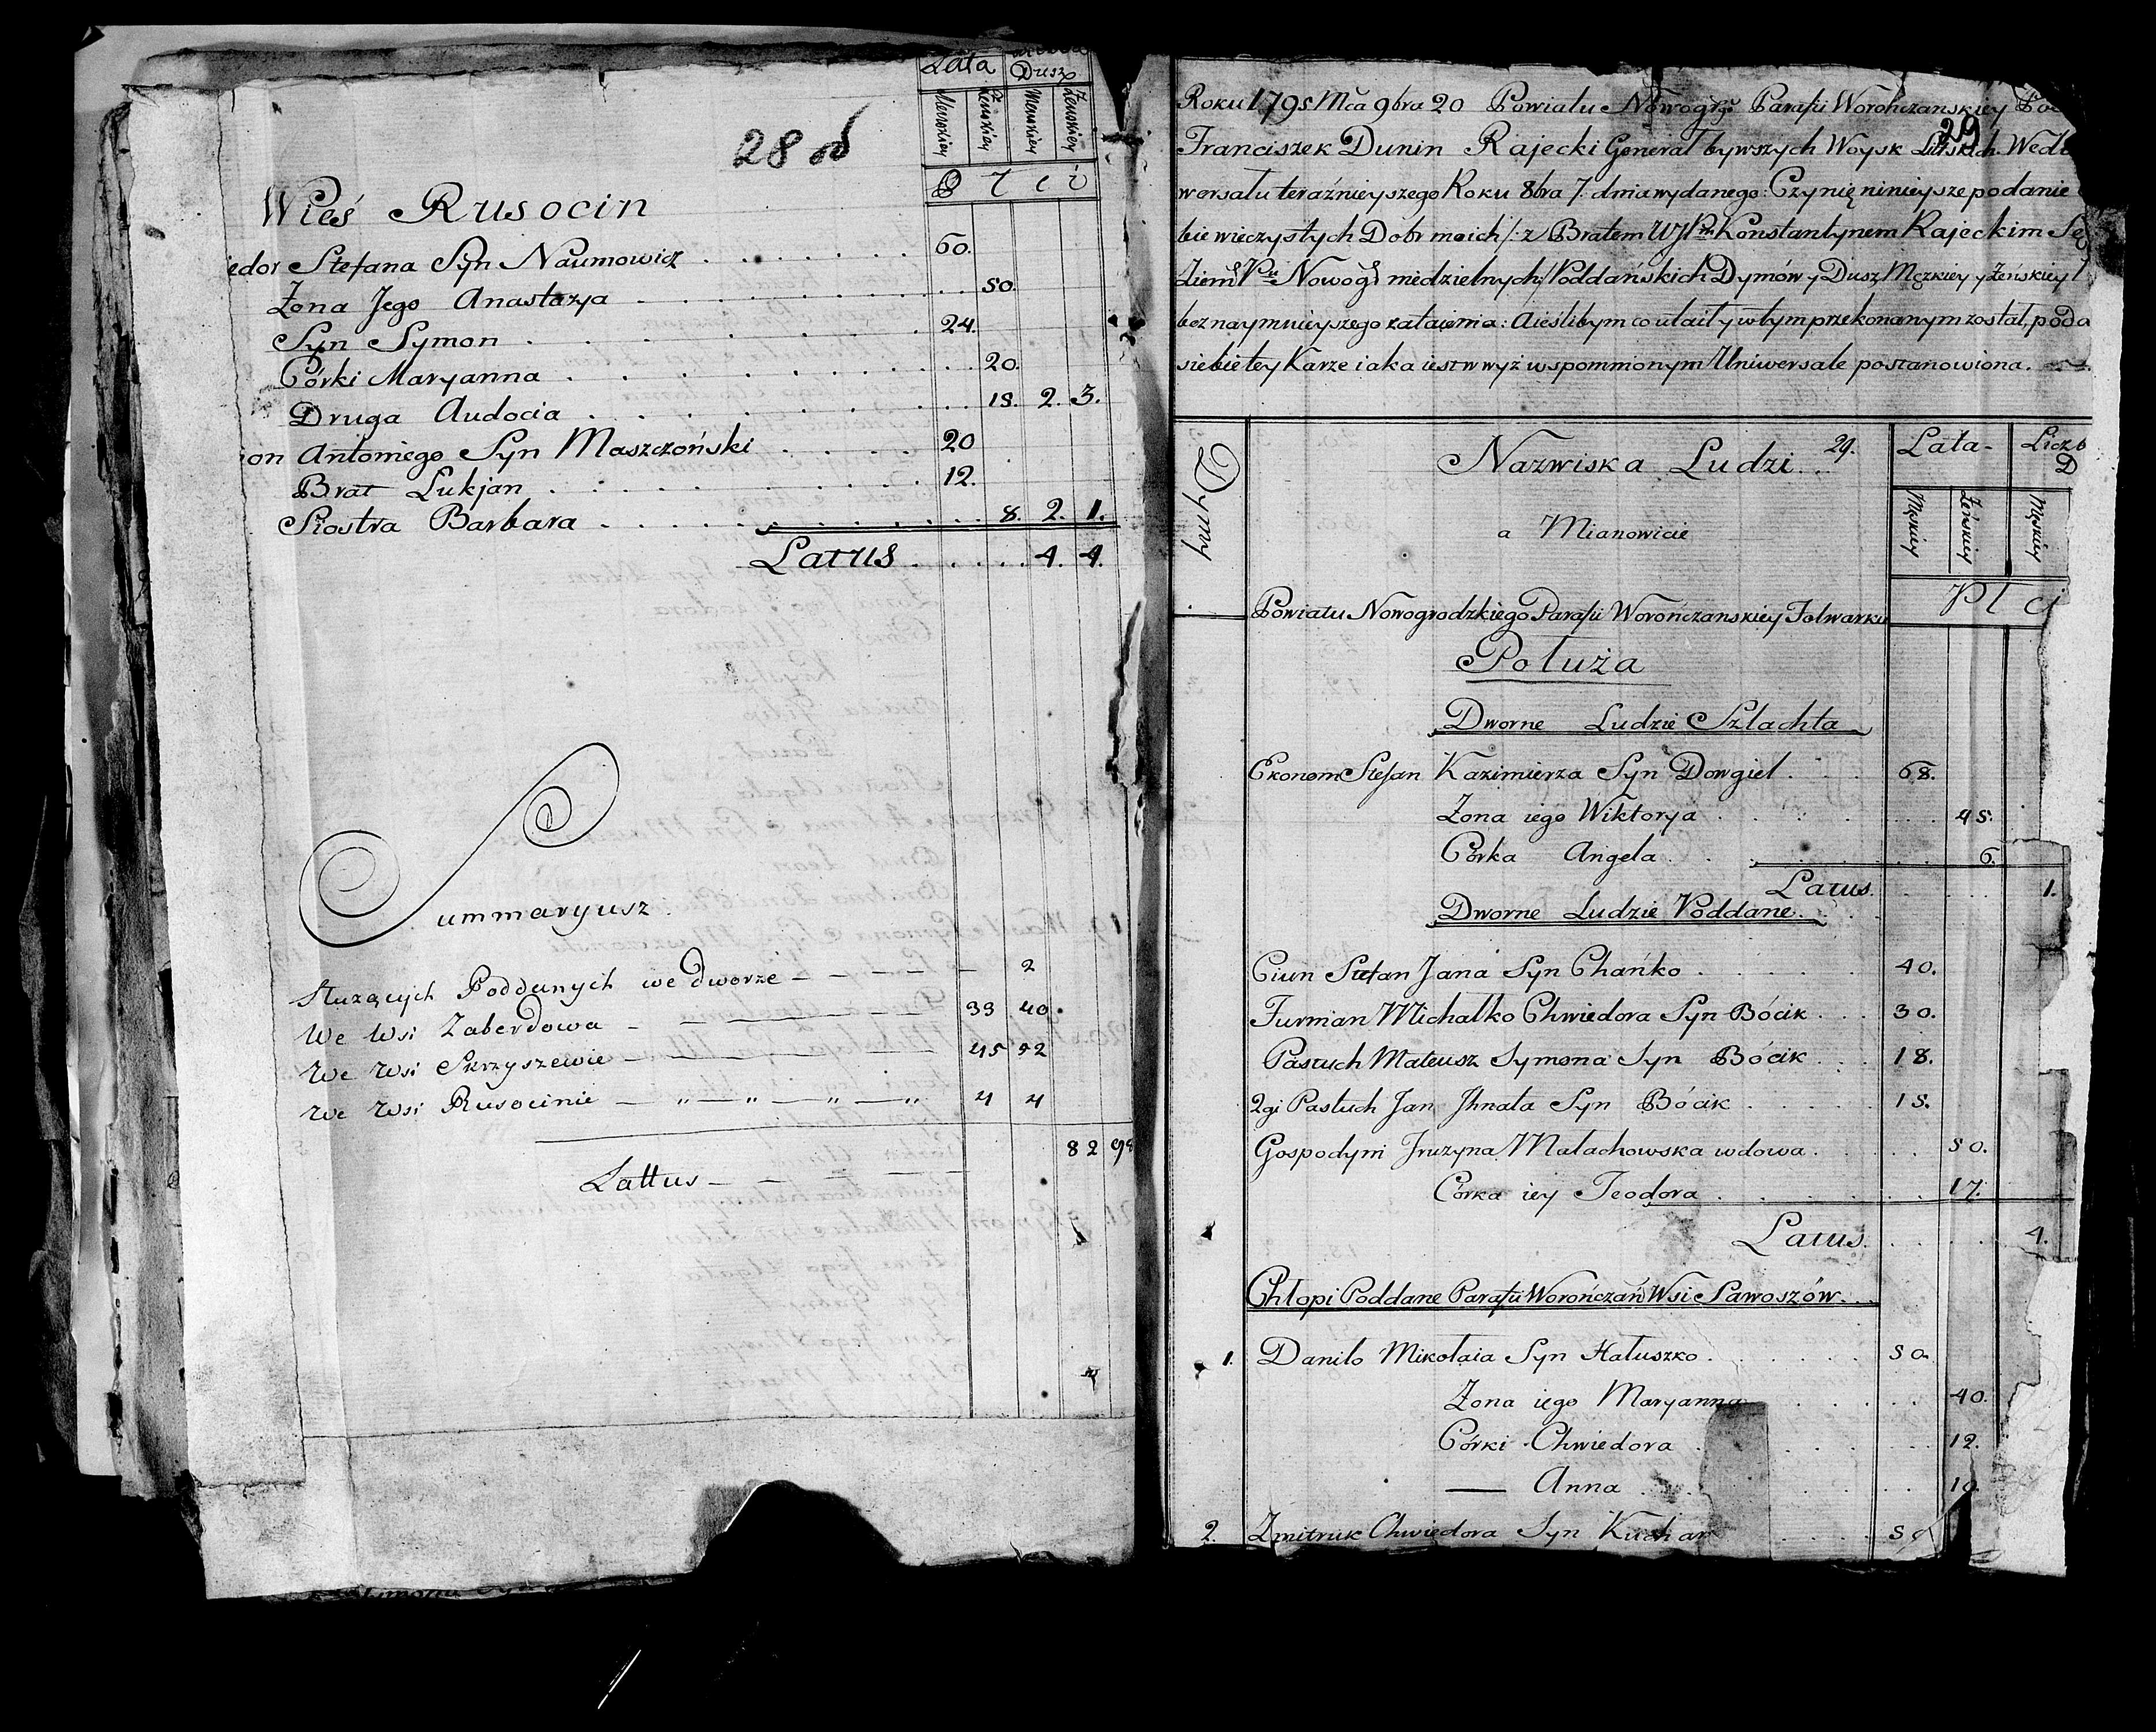 Lata Dusz
Menskiey Żenskiey Menskiey Żenskiey
28 об
P ł c i
Wieś Rusocin
edor Stefana Syn Naumowicz . . . . . . . 60.
Żona Jego Anastazya . . . . . . . 50.
Syn Symon . . . . . . . 24.
Córki Maryanna . . . . . . . 20.
Druga Audocia . . . . . . . 15. 2. 3.
on Antoniego Syn Maszczoński . . . . 20
Brat Łukjan . . . . . . . 12.
Siostra Barbara . . . . . . . 8. 2. 1.
Latus . . . . . 4. 4.
Summaryusz
Służących Poddanych we dworze — — — — — 2
We Wsi Zaberdowa — — — — 33 40.
We Wsi Skrzyszewie — — — — 45 52
We Wsi Rusocinie — „ — „ — „ — „ 4 4
82 98
Lattus — — — —
Roku 1795 Mca 9bra 20 Powiatu Nowogr Parafii Worończanskiey
29
Franciszek Dunin Rajecki Generał bywszych Woysk Litskich. Wedł
wersału teraźnieyszego Roku 8bra 7. dnia wydanego: Czynię ninieysze podanie
bie wieczystych Dobr moich /: z Bratem WJPm Konstantynem Rajeckim Sę
Ziem Ptu Nowog niedzielnych/ Poddańskich Dymów y Dusz Męzkiey y Żeńskiey
bez naymnieyszego zataienia: A ieślibym co utaił y w tym przekonanym został, poda
siebie tey Karze iaka iest w wyż wspomnionym Uniwersale postanowiona.
Dymy
Nazwiska Ludzi 29.
a Mianowicie
Lata Liczb D
Męskiey Żeńskiey Męskiey
Pł ci
Powiatu Nowogrodzkiego Parafii Worończanskiey Folwarku
Połuża
Dworne Ludzie Szlachta
Ekonom Stefan Kazimierza Syn Dowgieł . . . . 68.
Żona iego Wiktorya . . . . . . . 45.
Córka Angela . . . . . . . 6.
Latus. . . . . 1.
Dworne Ludzie Poddane.
Ciun Stefan Jana Syn Chańko . . . . . 40.
Furman Michałko Chwiedora Syn Bócik . . . 30.
Pastuch Mateusz Symona Syn Bócik . . . 18.
2gi Pastuch Jan Jhnata Syn Bócik . . . . . 15.
Gospodyni Jruzyna Małachowska wdowa . . . . . 50.
Córka iey Teodora . . . . . . 17.
Latus. . . . . 4.
Chłopi Poddane Parafii Worończań Wsi Sawoszów. . .
1. Daniło Mikołaia Syn Hałuszko . . . . . . 50.
Żona iego Maryanna . . . . . 40.
Córki Chwiedora . . . . . . 12.
— Anna . . . . . . 10.
2. Zmitruk Chwiedora Syn Kuchar . . . .